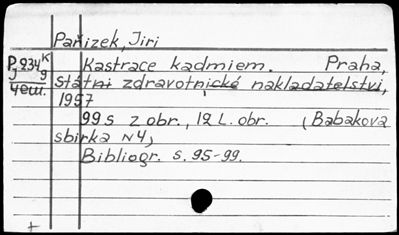 Pařízek, Jiri
P.234K Kastrace kadmiem. Praha,
J 9 státni zdravotnické nakladatelstvi,
чеш. 1957
99 s z obr., 12 l. obr. (Babakova
sbirka N4)
Bibliogr. s. 95-99.